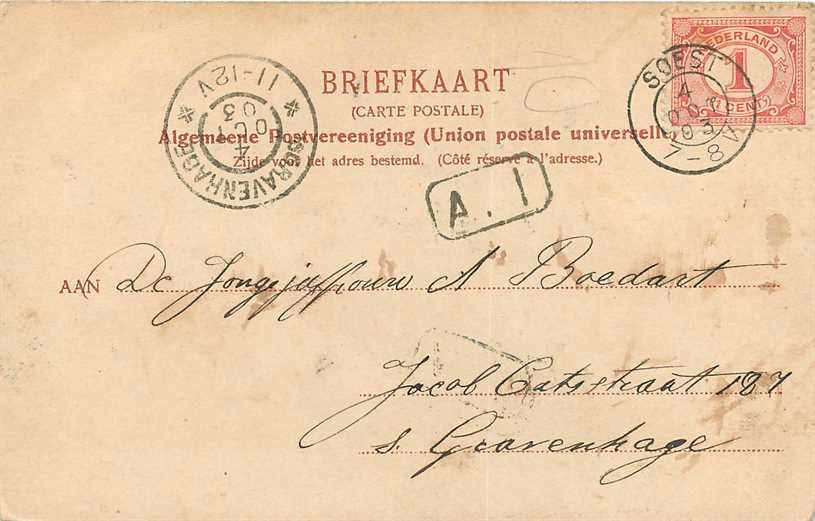 NEDERLAND
1
(1 CENT)
SOEST
4 OCT 03
7-8V
'S GRAVENHAGE
4
OCT
03
11-12V
BRIEFKAART
(CARTE POSTALE)
Algemeene Postvereeniging (Union postale universelle)
Zijde voor het adres bestemd. (Côté réservé à l'adresse.)
A. 1
AAN De Jongejuffrouw A Boedart
Jacob Catsstraat 187
s. Gravenhage